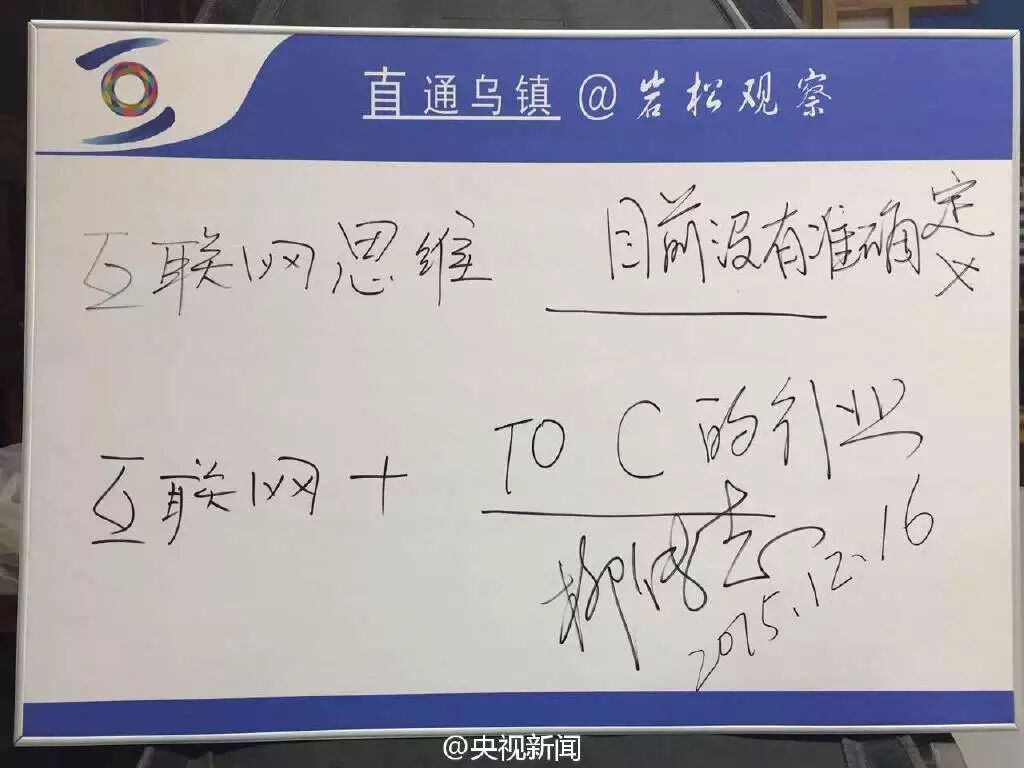 直通乌镇@岩松观察
互联网思维 目前没有准确定义
互联网+ TO C的行业
柳传志
2015.12.16
@央视新闻